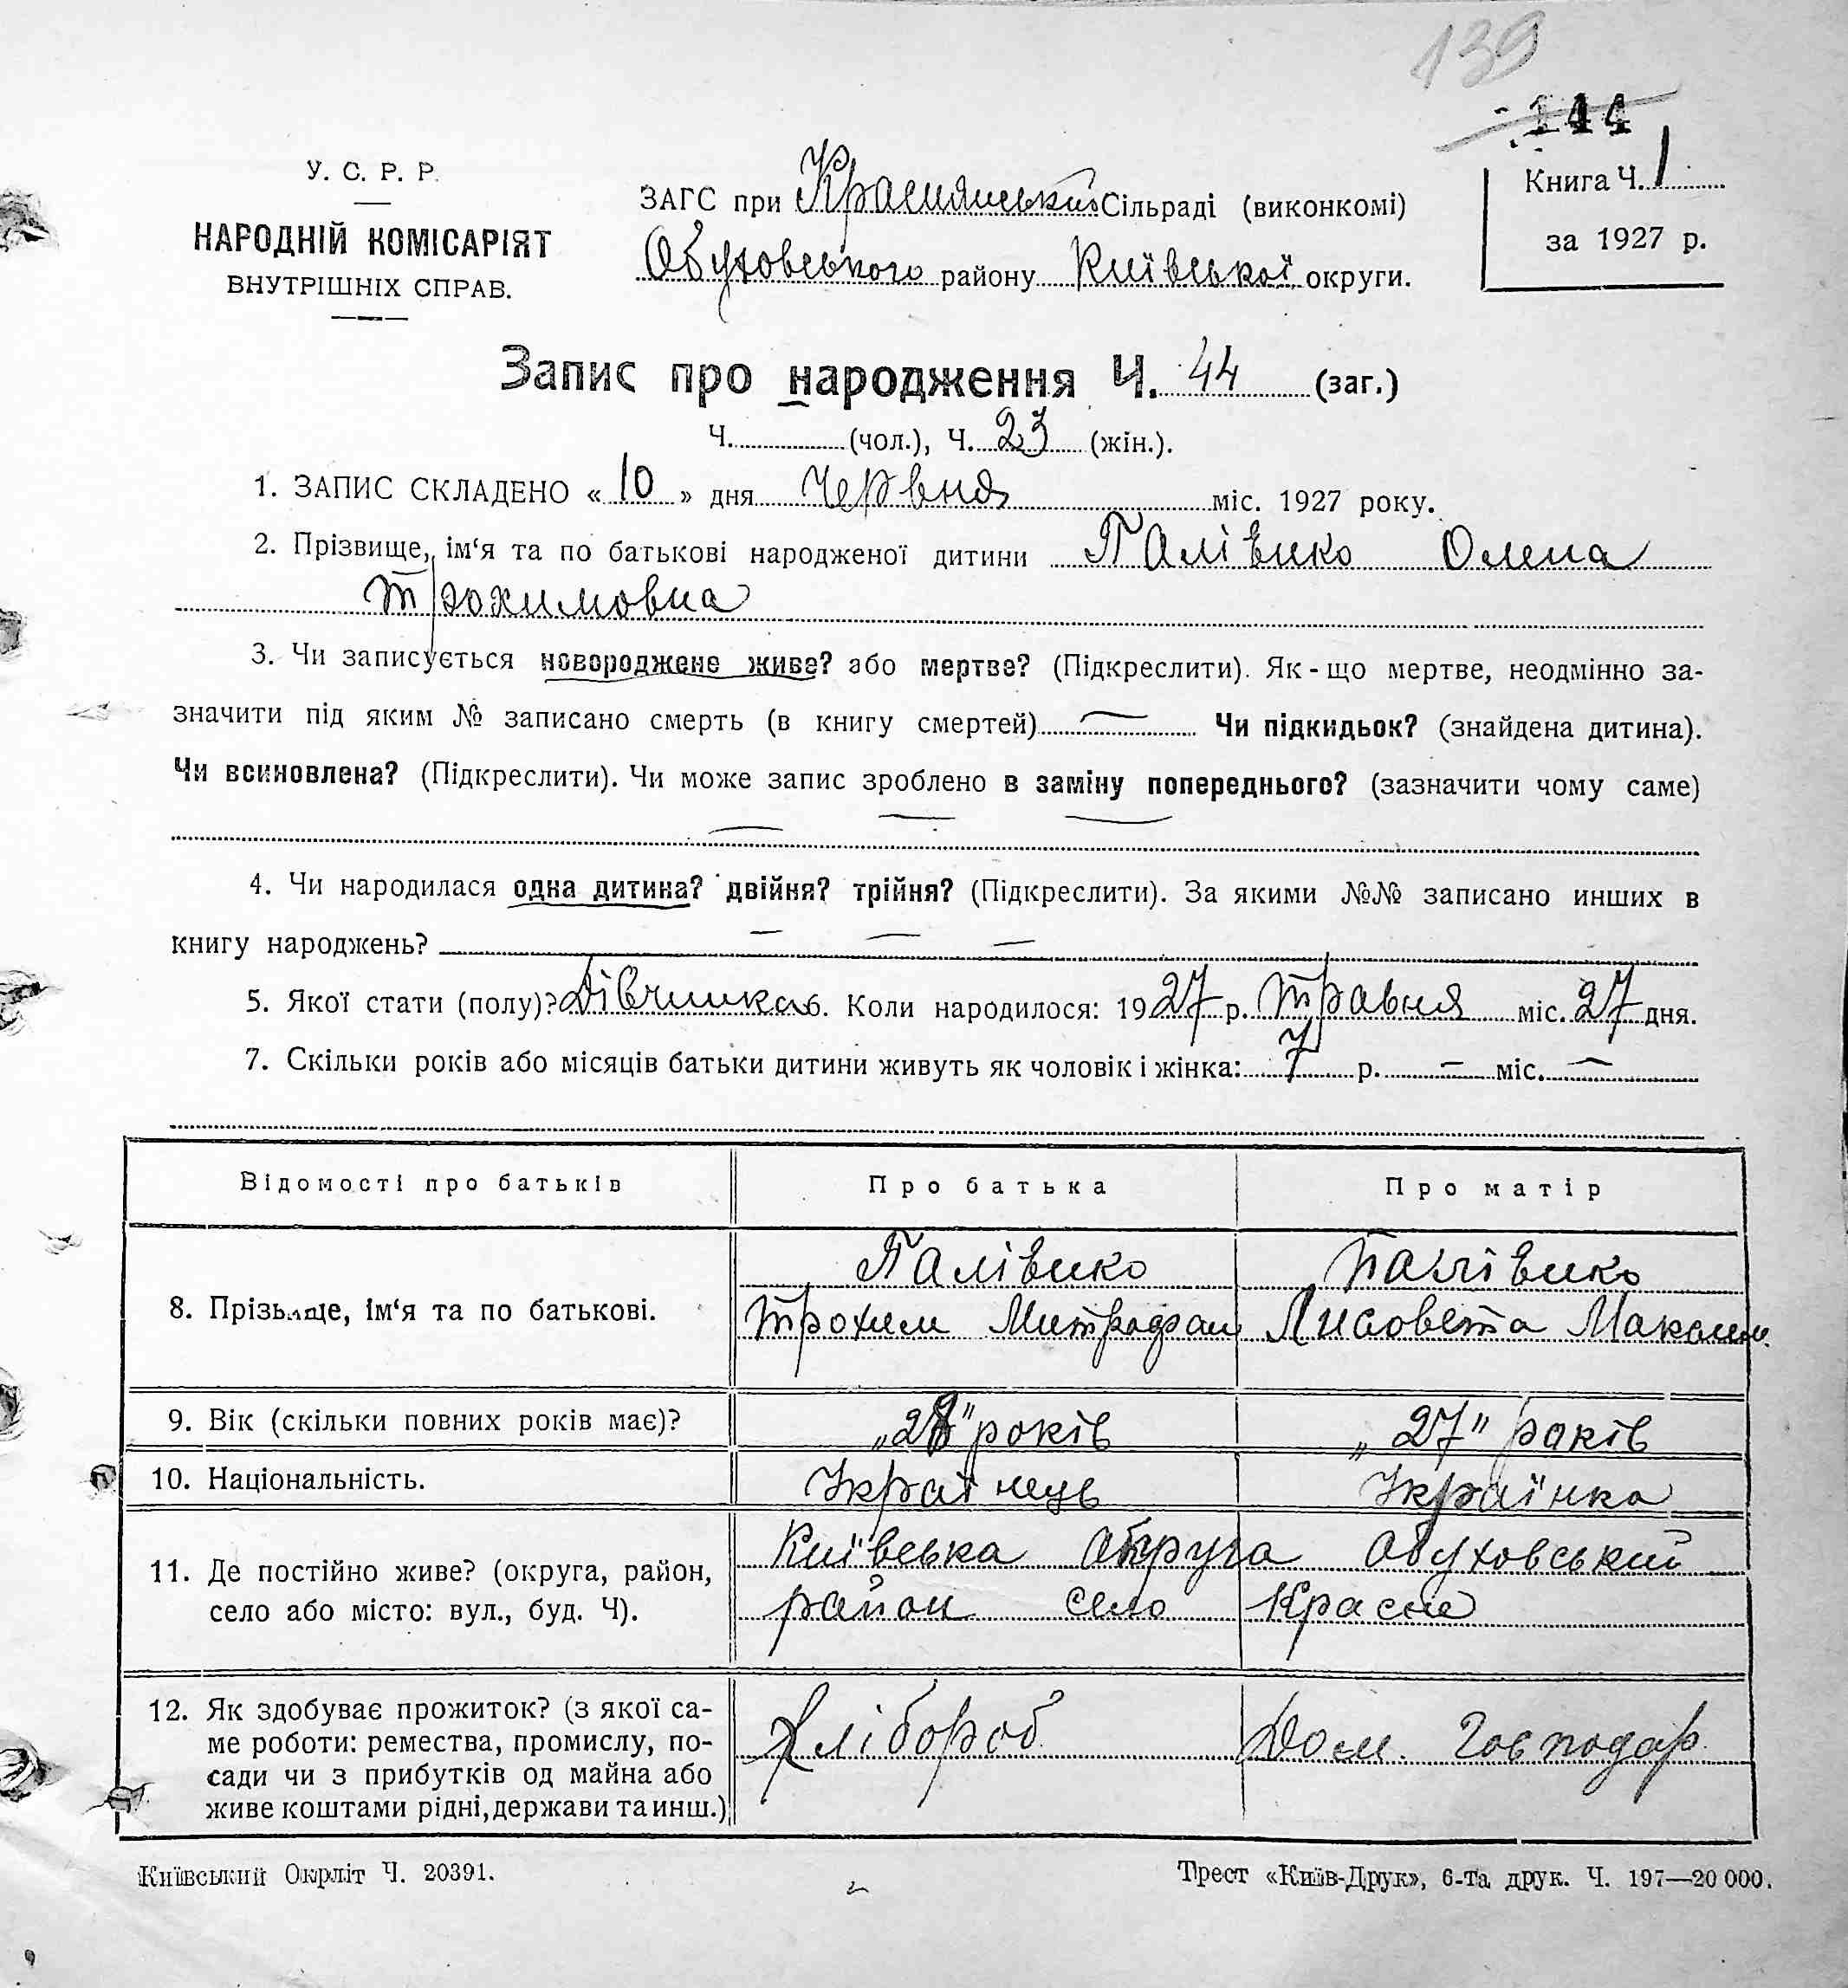 139
144
У. С. Р. Р.
НАРОДНІЙ КОМІСАРІЯТ
ВНУТРІШНІХ СПРАВ.
ЗАГС при Краснянський Сільраді (виконкомі)
Обуховського району Київської округи.
Книга Ч. 1
за 1927 р.
Запис про народження Ч. 44 (заг.)
Ч. (чол.), Ч. 23 (жін.).
1. ЗАПИС СКЛАДЕНО « 10 » дня Червня міс. 1927 року.
2. Прізвище, ім‘я та по батькові народженої дитини Палівико Олена
Трохимовна
3. Чи записується новороджене живе? або мертве? (Підкреслити). Як-що мертве, неодмінно за-
значити під яким № записано смерть (в книгу смертей) — Чи підкидьок? (знайдена дитина).
Чи всиновлена? (Підкреслити). Чи може запис зроблено в заміну попереднього? (зазначити чому саме)
— — —
4. Чи народилася одна дитина? двійня? трійня? (Підкреслити). За якими №№ записано инших в
книгу народжень? — — —
5. Якої стати (полу)? Дівчинка 6. Коли народилося: 1927 р. Травня міс. 27 дня.
7. Скільки років або місяців батьки дитини живуть як чоловік і жінка: 7 р. — міс. —
Відомості про батьків Про батька Про матір
8. Прізвище, ім‘я та по батькові.
Палівико Палівико
Трохим Митрофан Лисовета Максим.
9. Вік (скільки повних років має)? „28" років „27" років
10. Національність. Українець Українка
11. Де постійно живе? (округа, район,
село або місто: вул., буд. Ч).
Київська округа Обуховський
район село Красне
12. Як здобуває прожиток? (з якої са-
ме роботи: ремества, промислу, по-
сади чи з прибутків од майна або
живе коштами рідні, держави та инш.)
Хлібороб Дом. Господар.
Київський Окрліт Ч. 20391.
Трест «Київ-Друк», 6-та друк. Ч. 197—20 000.